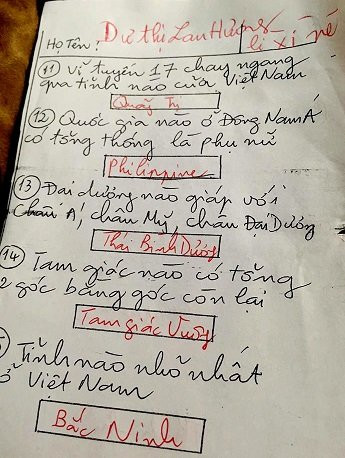 Họ Tên: Dư thị Lan Hương
lì xì né
11 Vĩ tuyến 17 chạy ngang
qua tỉnh nào của Việt Nam
Quảng Trị
12 Quốc gia nào ở Đông Nam Á
có tổng thống là phụ nữ
Philippine
13 Đại dương nào giáp với
Châu Á, châu Mỹ, châu Đại Dương
Thái Bình Dương
14 Tam giác nào có tổng
2 góc bằng góc còn lại
Tam giác Vuông
Tỉnh nào nhỏ nhất
ở Việt Nam
Bắc Ninh